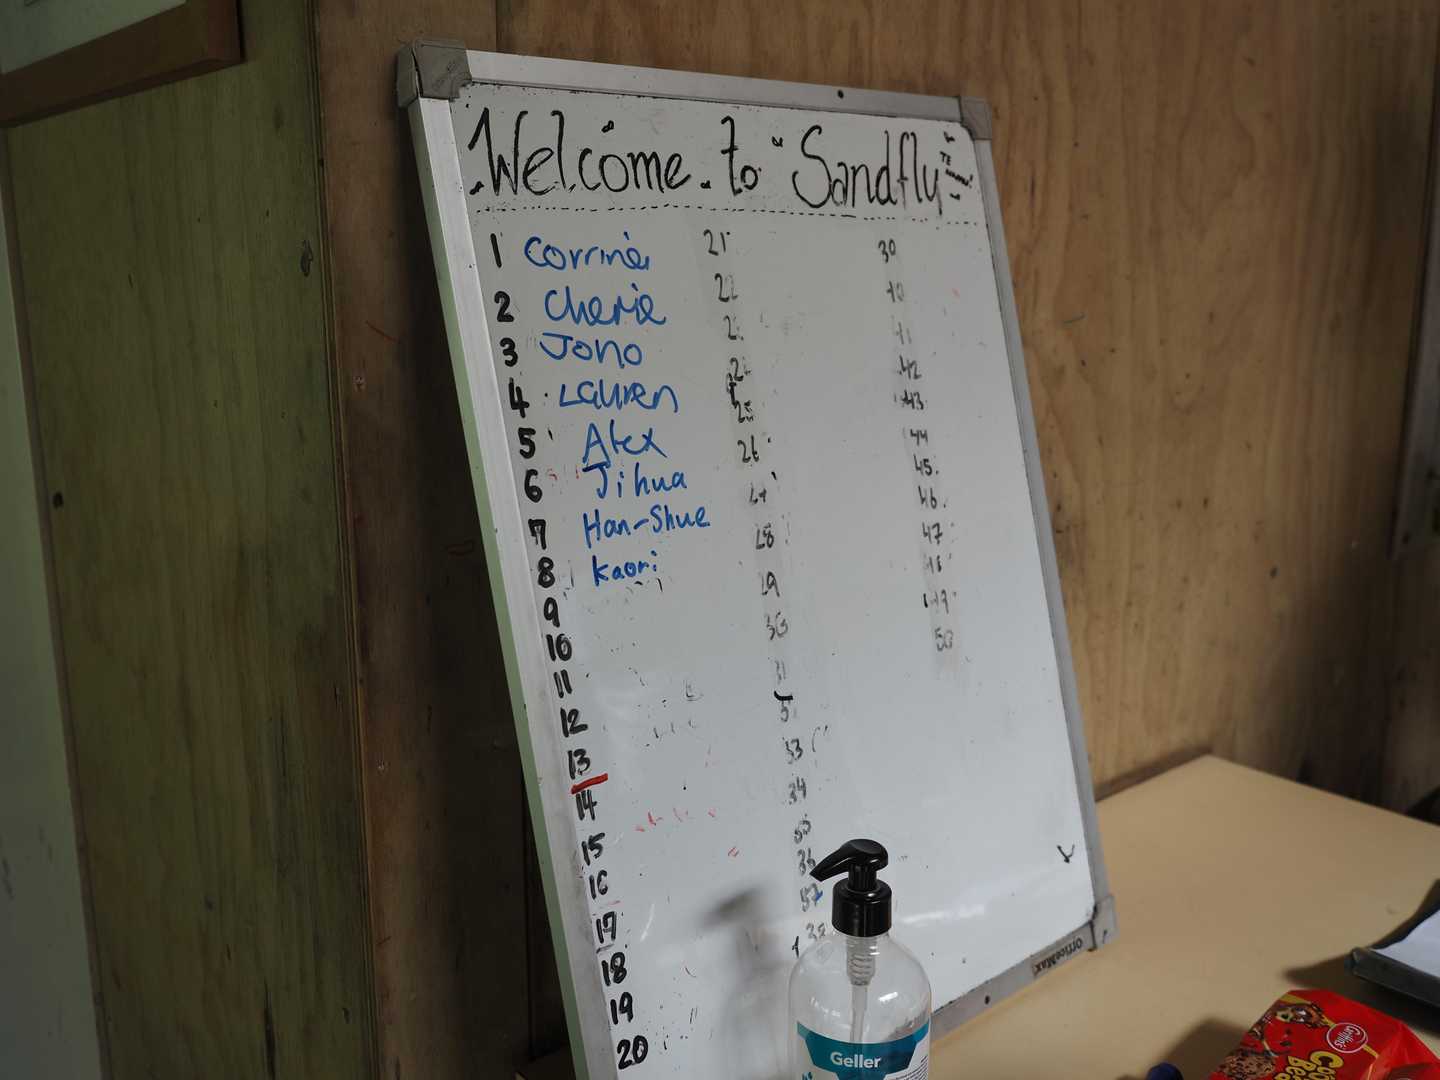 Welcome to "Sandfly"
1 Corrine
2 Cherie
3 Jono
4 Lauren
5 Alex
6 Jihua
7 Han-Shue
8 Kaori
9
10
11
12
13
14
15
16
17
18
19
20
21
22
26
28
29
30
33
34
36
37
38
30
40
41
42
43
44
45
46
47
48
49
50
OfficeMax
Geller
Griffin's